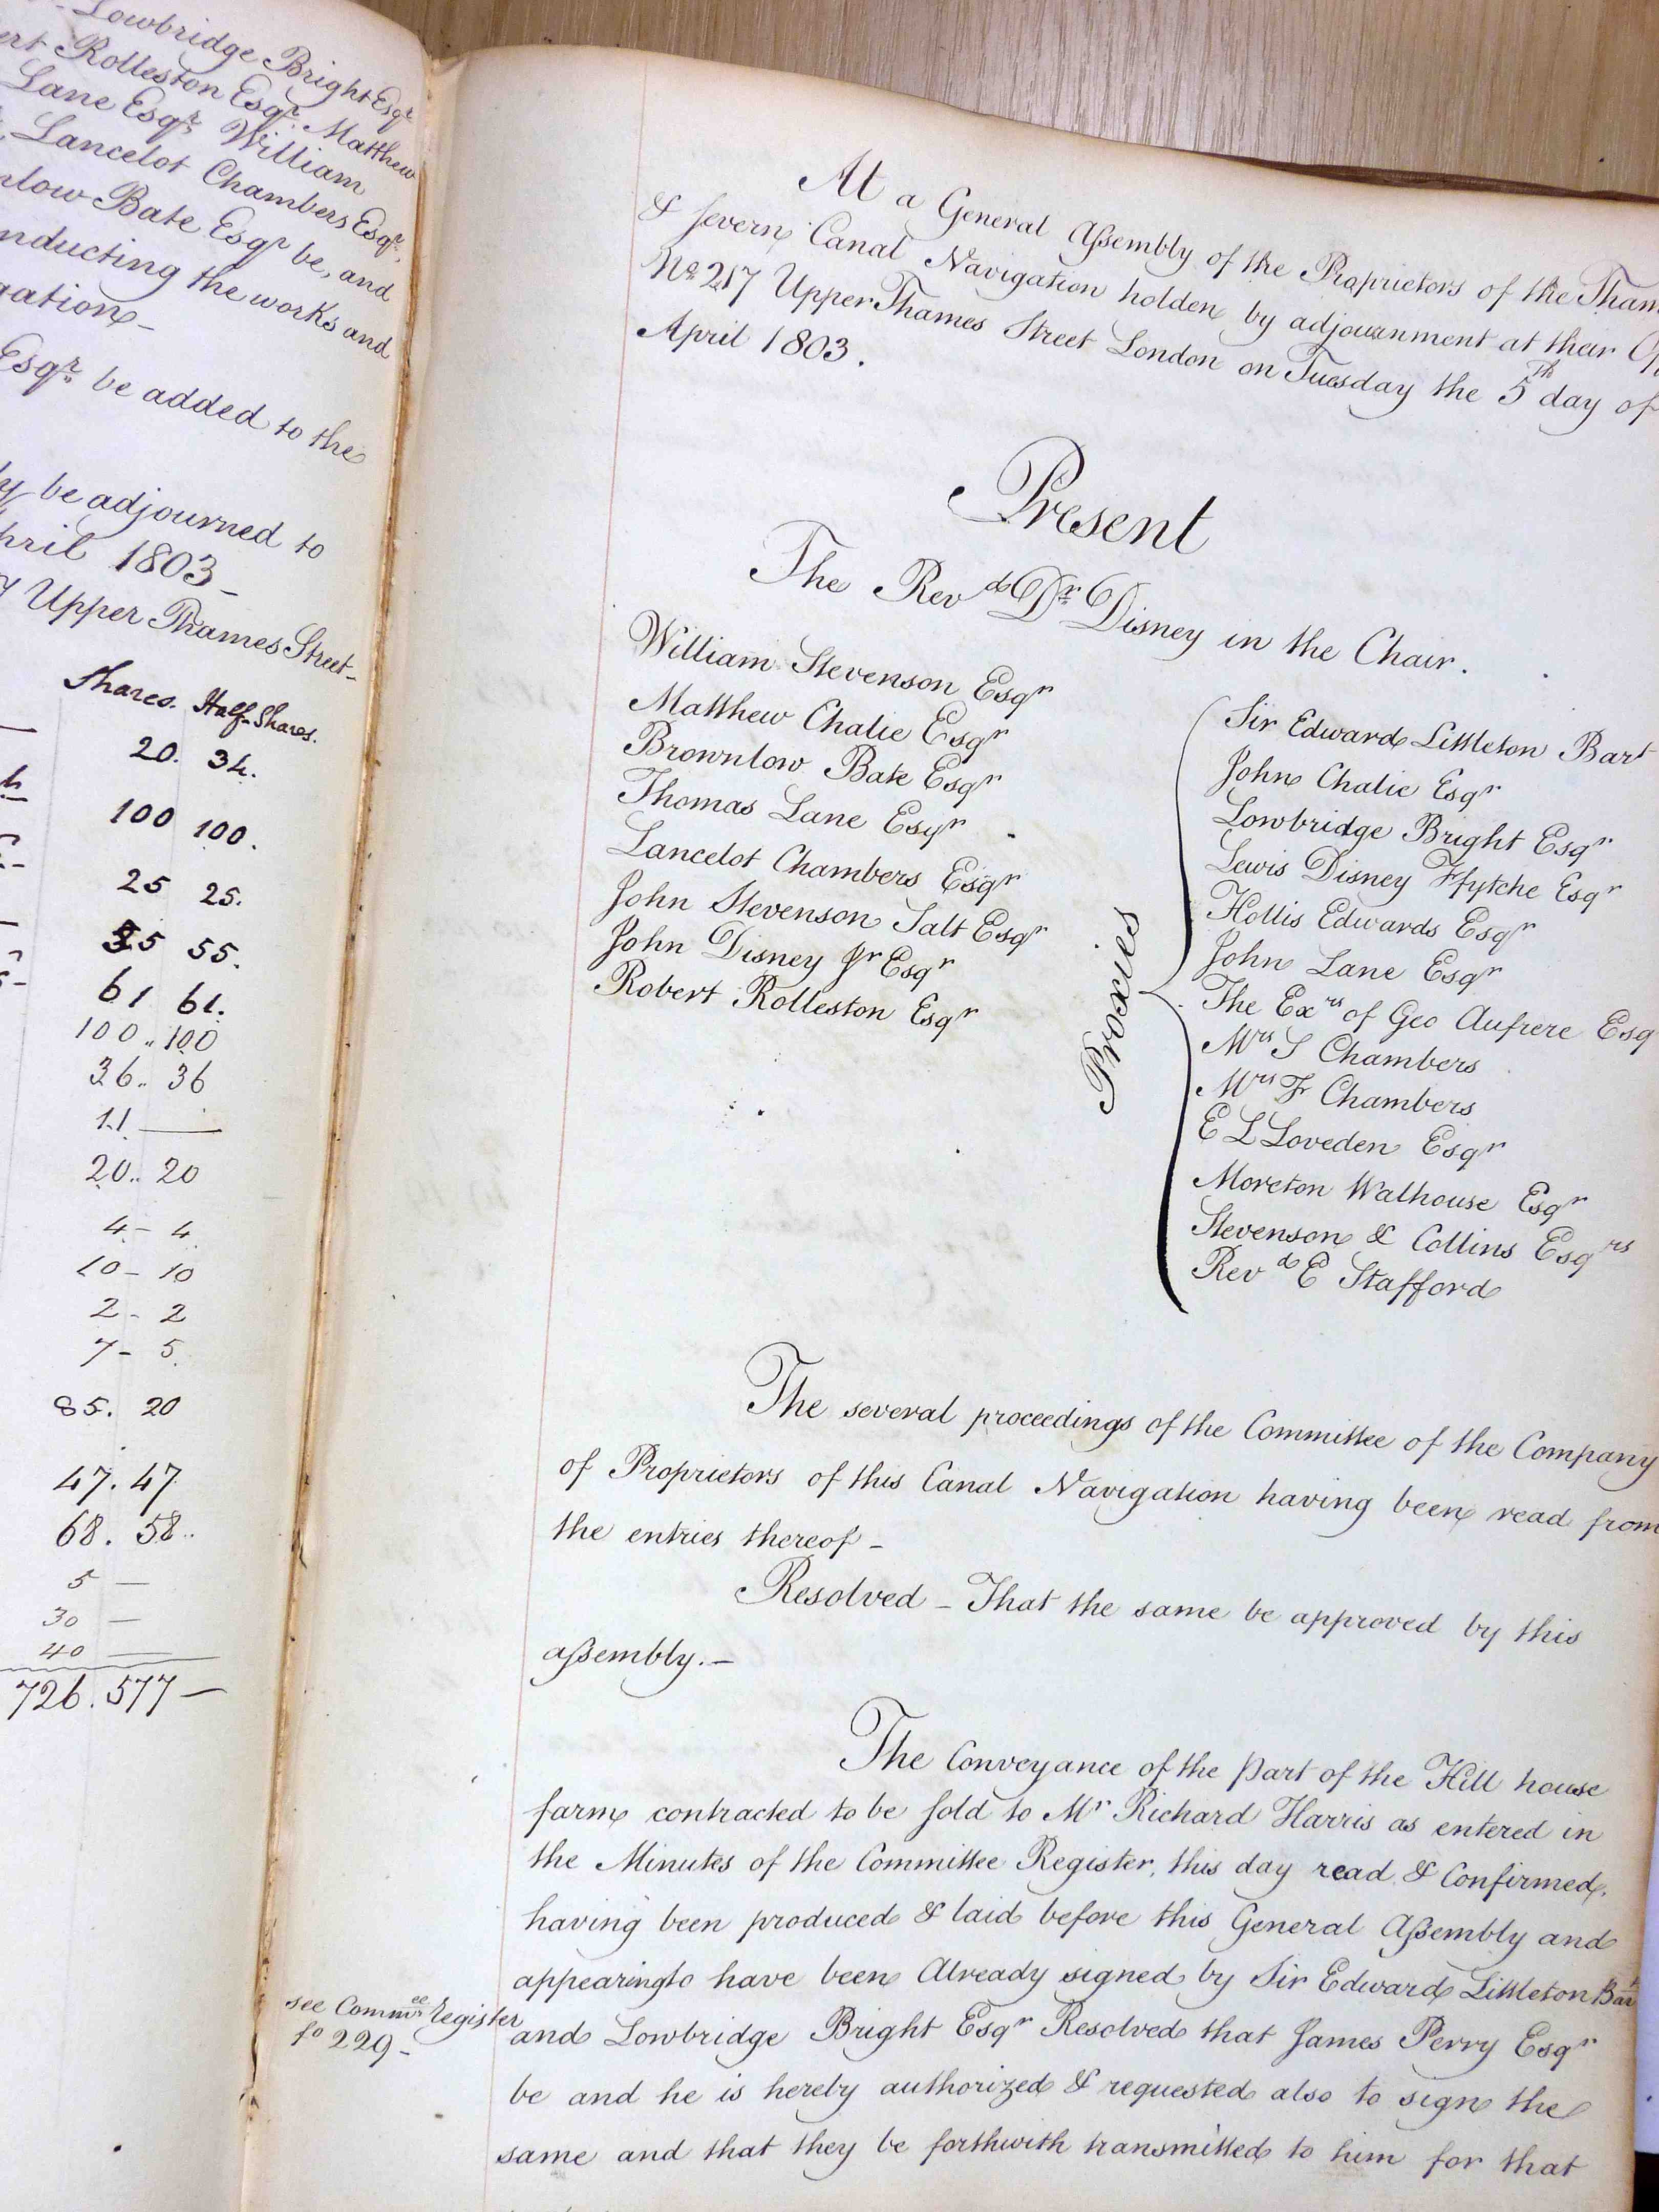 Lowbridge Bright Esqr
Rolleston Esqr. Matthew
Lane Esqr. William
Lancelot Chambers Esqr.
Bate Esqr be, and
the works and
Esqr. be added to the
be adjourned to
1803 _
Upper Thames Street _
Shares. Half-Shares.
20. 34.
100 100.
25 25.
55.
61 61.
100 .. 100
36 .. 36
11. —
20 .. 20
4 - 4
10 - 10
2 - 2
7 - 5.
85. 20
47. 47
68. 58 ..
5 —
30 —
40 —
726. 577 —
At a General Assembly of the Proprietors of the
& Severn Canal Navigation holden by adjournment at their
No 217 Upper Thames Street London on Tuesday the 5th day of
April 1803.
Present
The Revd Dr Disney in the Chair.
William Stevenson Esqr
Matthew Chalie Esqr
Brownlow Bate Esqr
Thomas Lane Esqr
Lancelot Chambers Esqr
John Stevenson Salt Esqr
John Disney Jr Esqr
Robert Rolleston Esqr
Proxies
Sir Edward Littleton Bart
John Chalie Esqr
Lowbridge Bright Esqr
Lewis Disney Ffytche Esqr
Hollis Edwards Esqr
John Lane Esqr
The Exrs of Geo Aufrere Esq
Mrs S Chambers
Mrs F Chambers
E L Loveden Esqr
Moreton Walhouse Esqr
Stevenson & Collins Esqrs
Revd E Stafford
The several proceedings of the Committee of the Company
of Proprietors of this Canal Navigation having been read from
the entries thereof -
Resolved - That the same be approved by this
assembly. -
The Conveyance of the part of the Hill house
farm contracted to be sold to Mr Richard Harris as entered in
the Minutes of the Committee Register, this day read & Confirmed,
having been produced & laid before this General Assembly and
appearing to have been Already signed by Sir Edward Littleton Bart
see Commee Register
fo 229 -
and Lowbridge Bright Esqr Resolved that James Perry Esqr
be and he is hereby authorized & requested also to sign the
same and that they be forthwith transmitted to him for that